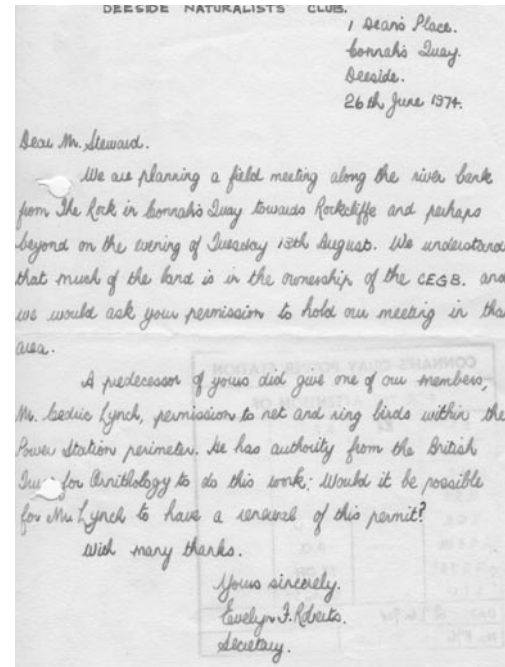 DEESIDE NATURALISTS CLUB.
1 Deans Place.
Connah's Quay.
Deeside.
26th June 1974.
Dear Mr. Steward.
We are planning a field meeting along the river bank
from The Rock in Connah's Quay towards Rockcliffe and perhaps
beyond on the evening of Tuesday 13th August. We understand
that much of the land is in the ownership of the CEGB. and
we would ask your permission to hold our meeting in tha
area.
A predecessor of yours did give one of our members,
Mr. Cedric Lynch, permission to net and ring birds within the
Power Station perimeter. He has authority from the British
for Ornithology to do this work; Would it be possible
for Mr Lynch to have a renewal of this permit?
With many thanks.
Yours sincerely.
Evelyn F. Roberts.
Secretary.
CONNAH'S QUAY POWER STATION
FOR THE ATTENTION OF